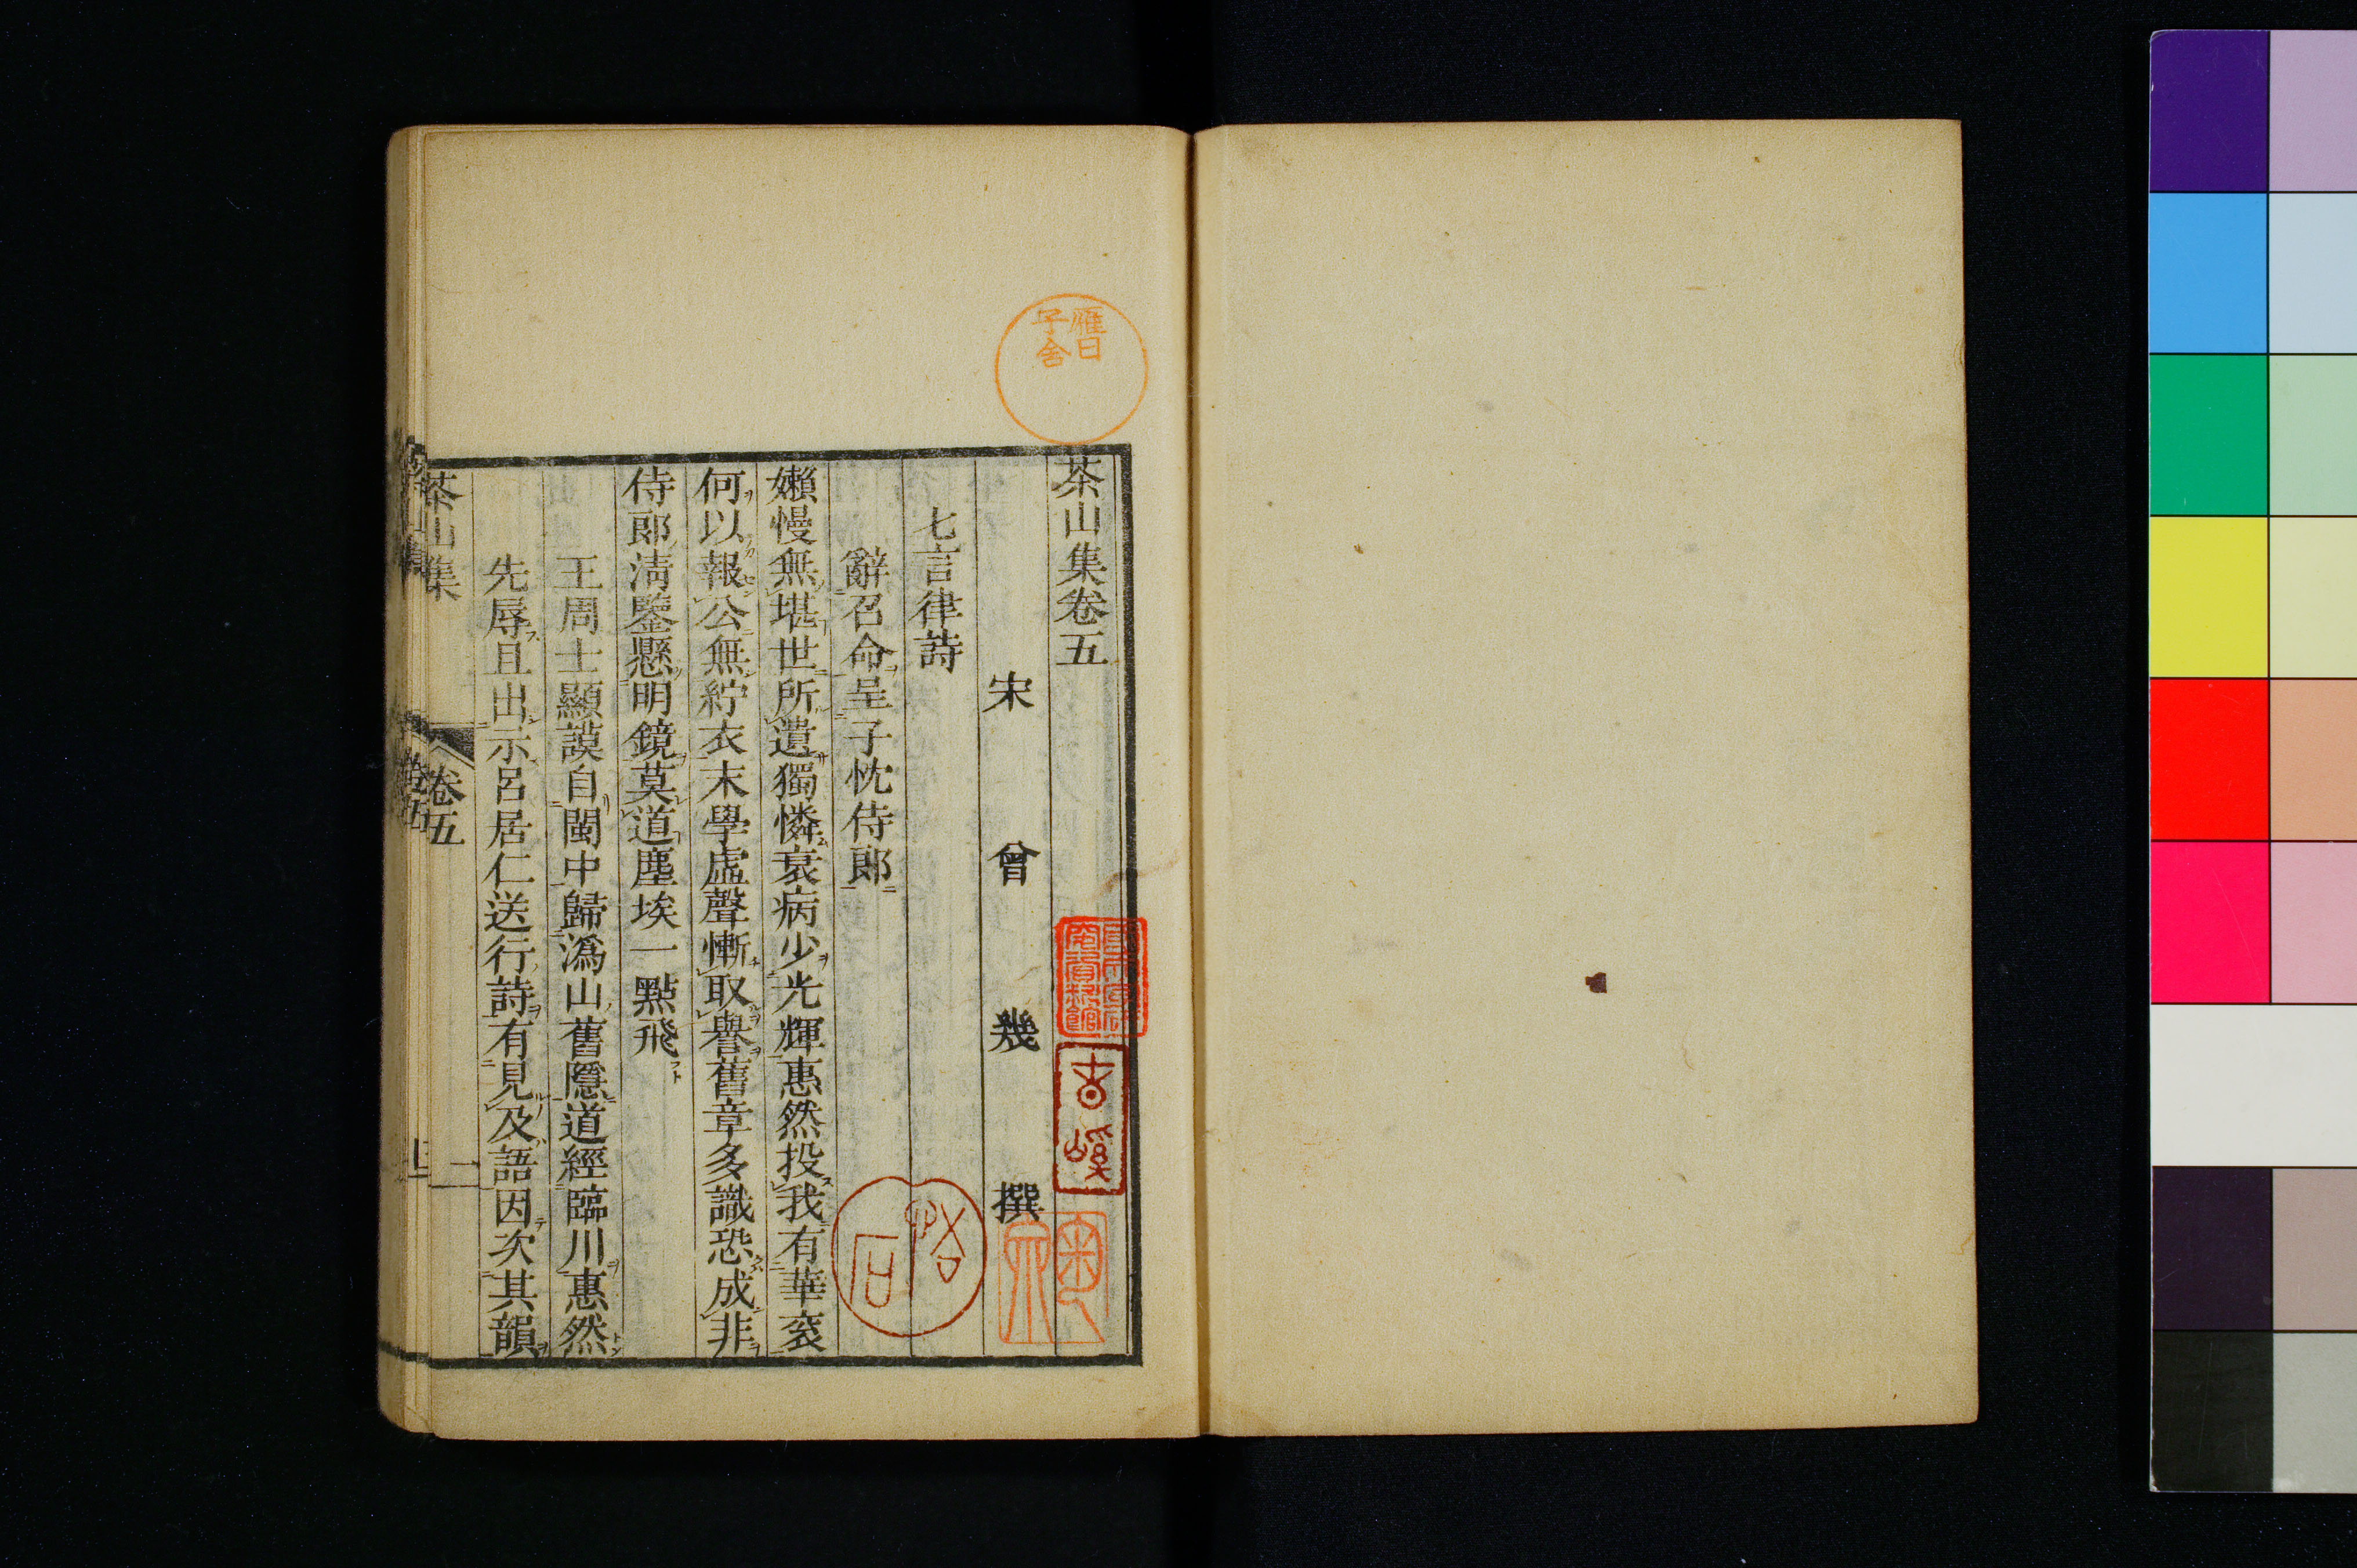 茶山集卷五
宋　曾　幾　撰
七言律詩
辭召命呈子忱侍郎
嬾慢無堪世所遺獨憐衰病少光輝惠然投我有華衮
何以報公無紵衣末學虛聲慚取譽舊章多識恐成非
侍郎淸鑒懸明鏡莫道塵埃一點飛
王周士顯謨自閩中歸潙山舊隱道經臨川惠然
先辱且出示呂居仁送行詩有見及語因次其韻
茶山集
卷五
一